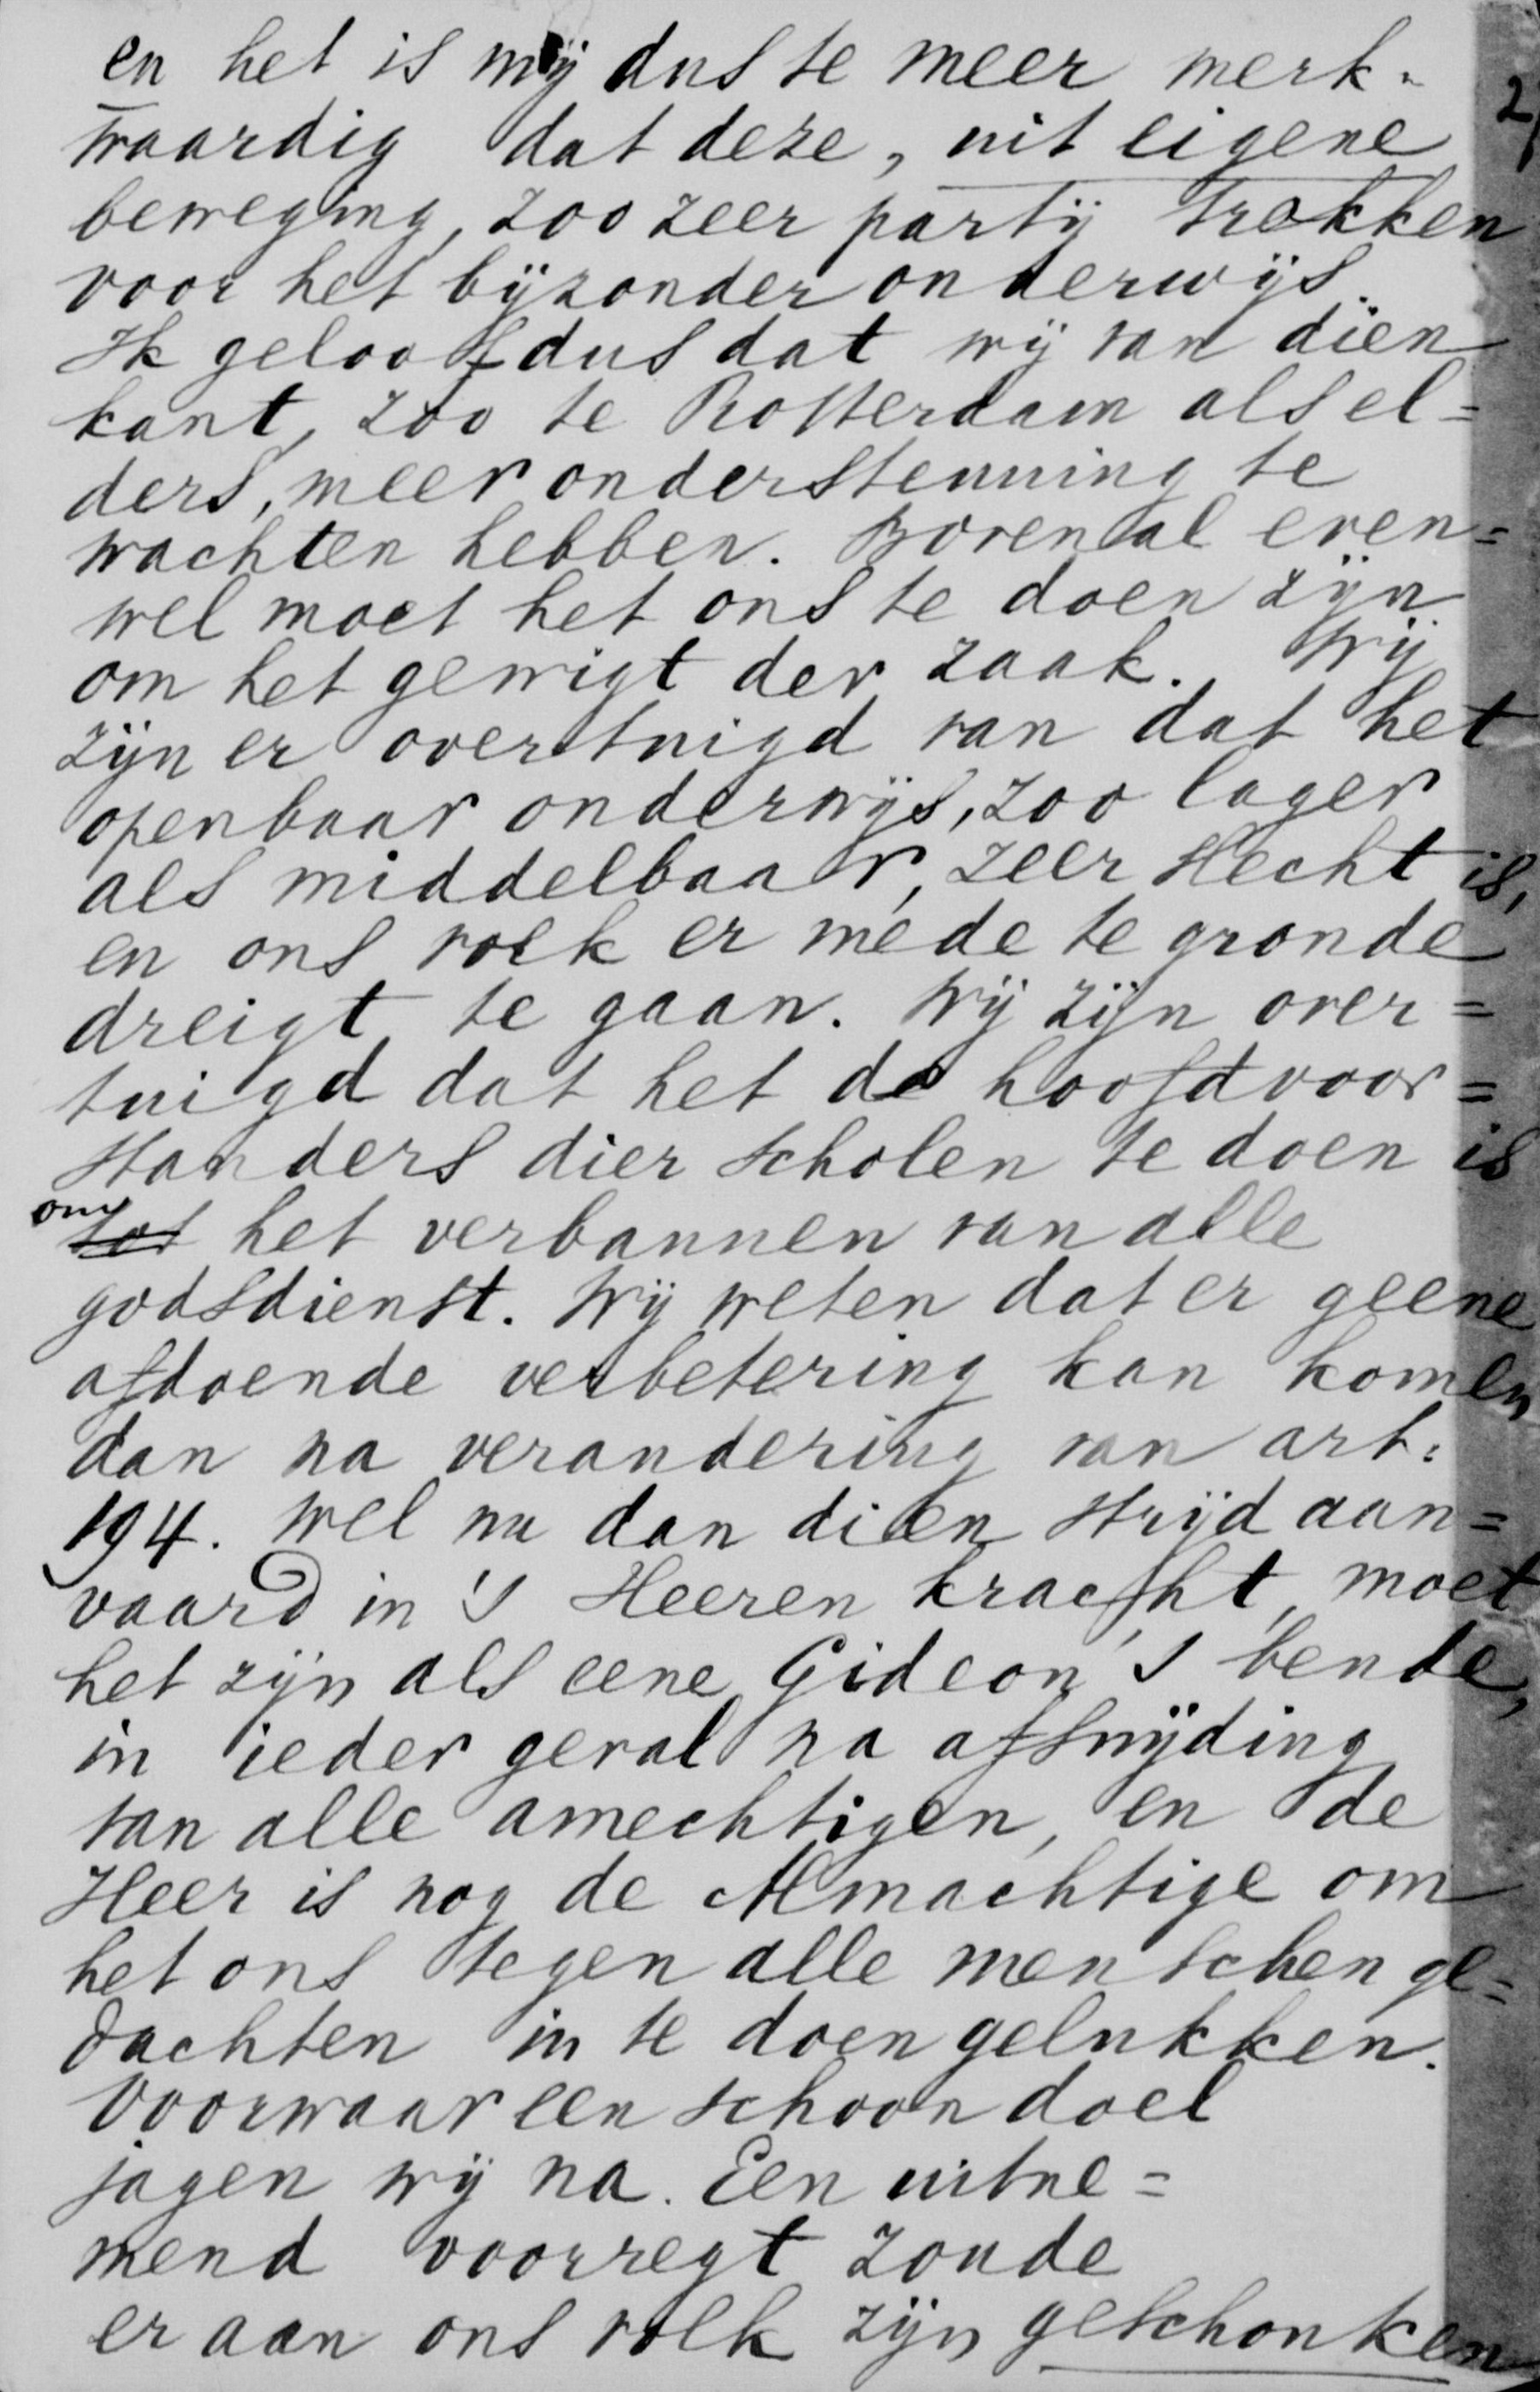 2
en het is mij dus te meer merk-
waardig dat deze, uit eigene
beweging, zoo zeer partij trekken
voor het bijzonder onderwijs.
Ik geloof dus dat wij van dien
kant, zoo te Rotterdam als el=
ders, meer ondersteuning te
wachten hebben. Bovenal even=
wel moet het ons te doen zijn
om het gewigt der zaak. Wij
zijn er overtuigd van dat het
openbaar onderwijs, zoo lager
als middelbaar, zeer slecht is,
en ons volk er mede te gronde
dreigt te gaan. Wij zijn over=
tuigd dat het de hoofdvoor=
standers dier scholen te doen is
om
tot het verbannen van alle
godsdienst. Wij weten dat er geene
afdoende verbetering kan komen
dan na verandering van art:
194. Wel nu dan dien strijd aan=
vaard in 's Heeren kracht, moet
het zijn als eene Gideon's bende,
in ieder geval na afsnijding
van alle amechtigen, en de
Heer is nog de Almachtige om
het ons tegen alle menschen ge=
dachten in te doen gelukken.
Voorwaar een schoon doel
jagen wij na. Een uitne=
mend voorregt zoude
er aan ons volk zijn geschonken